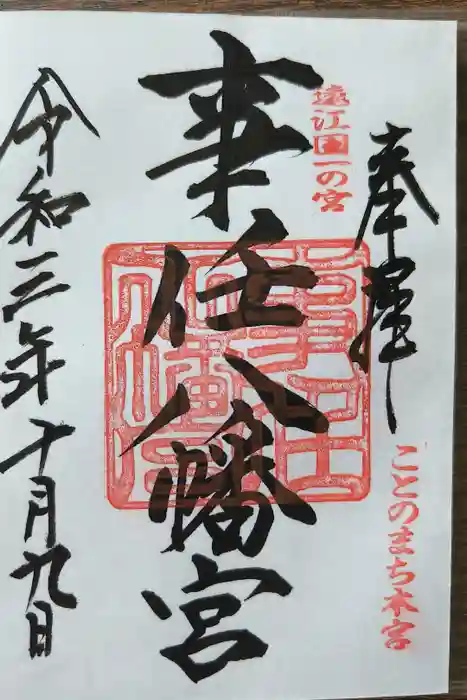 奉拝
ことのまち本宮
遠江国一の宮
事任八幡宮
令和三年十月九日